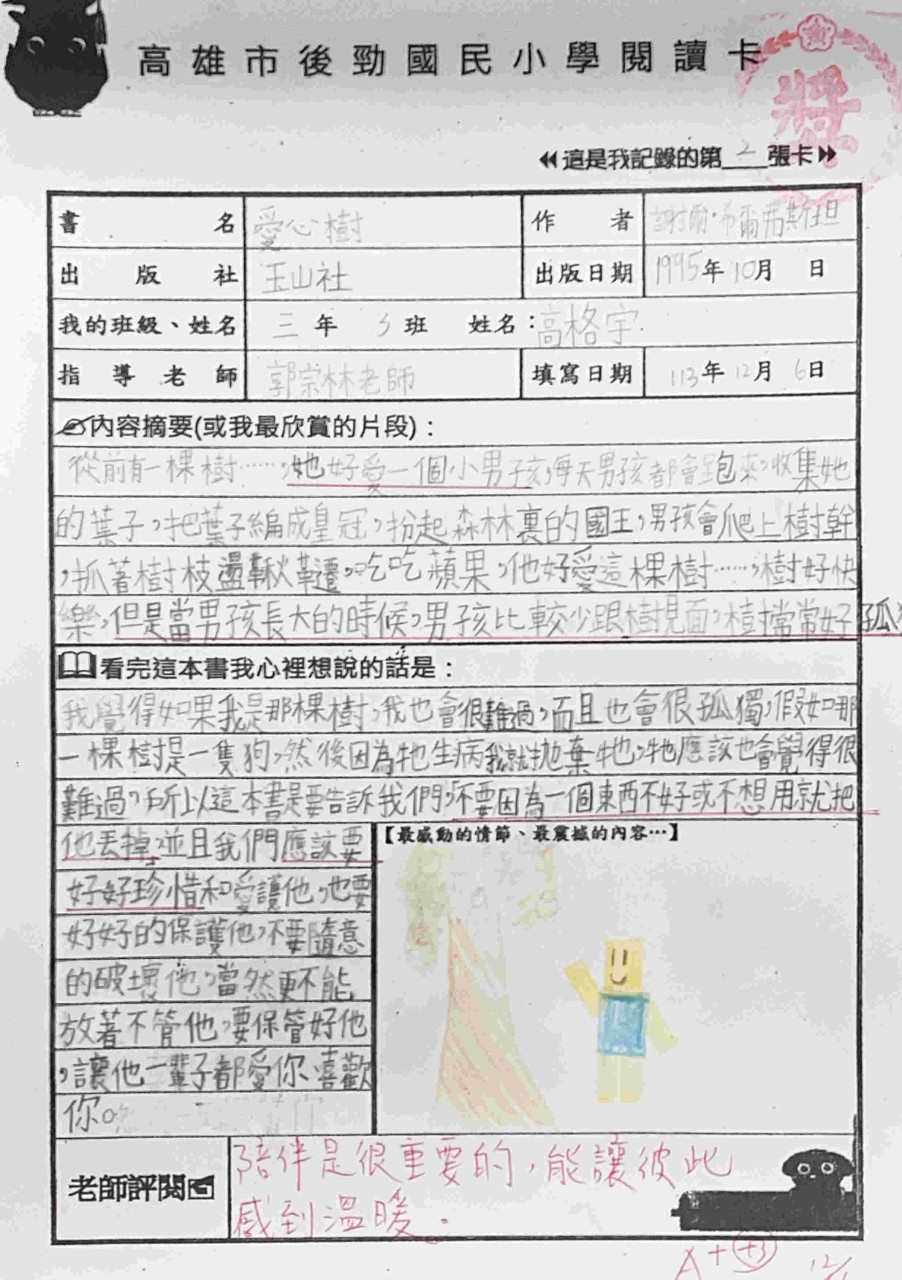 高雄市後勁國民小學閱讀卡
獎
這是我記錄的第2張卡
書名 愛心樹 作者 謝爾·希爾弗斯坦
出版社 玉山社 出版日期 1995年10月 日
我的班級、姓名 三年3班 姓名:高格宇
指導老師 郭宗林老師 填寫日期 113年12月6日
內容摘要(或我最欣賞的片段):
從前有一棵樹……,她好愛一個小男孩,每天男孩都會跑來,收集她
的葉子,把葉子編成皇冠,扮起森林裏的國王,男孩會爬上樹幹
,抓著樹枝盪鞦韆,吃吃蘋果,他好愛這棵樹……,樹好快
樂,但是當男孩長大的時候,男孩比較少跟樹見面,樹常常好孤
看完這本書我心裡想說的話是:
我覺得如果我是那棵樹,我也會很難過,而且也會很孤獨,假如那
一棵樹是一隻狗,然後因為牠生病我就拋棄牠,牠應該也會覺得很
難過,所以這本書是要告訴我們,不要因為一個東西不好或不想用就把
他丟掉,並且我們應該要
好好珍惜和愛護他,也要
好好的保護他,不要隨意
的破壞他,當然更不能
放著不管他,要保管好他
,讓他一輩子都愛你喜歡
你。
【最感動的情節、最震撼的內容…】
老師評閱
陪伴是很重要的,能讓彼此
感到溫暖。
A+ +3 12/